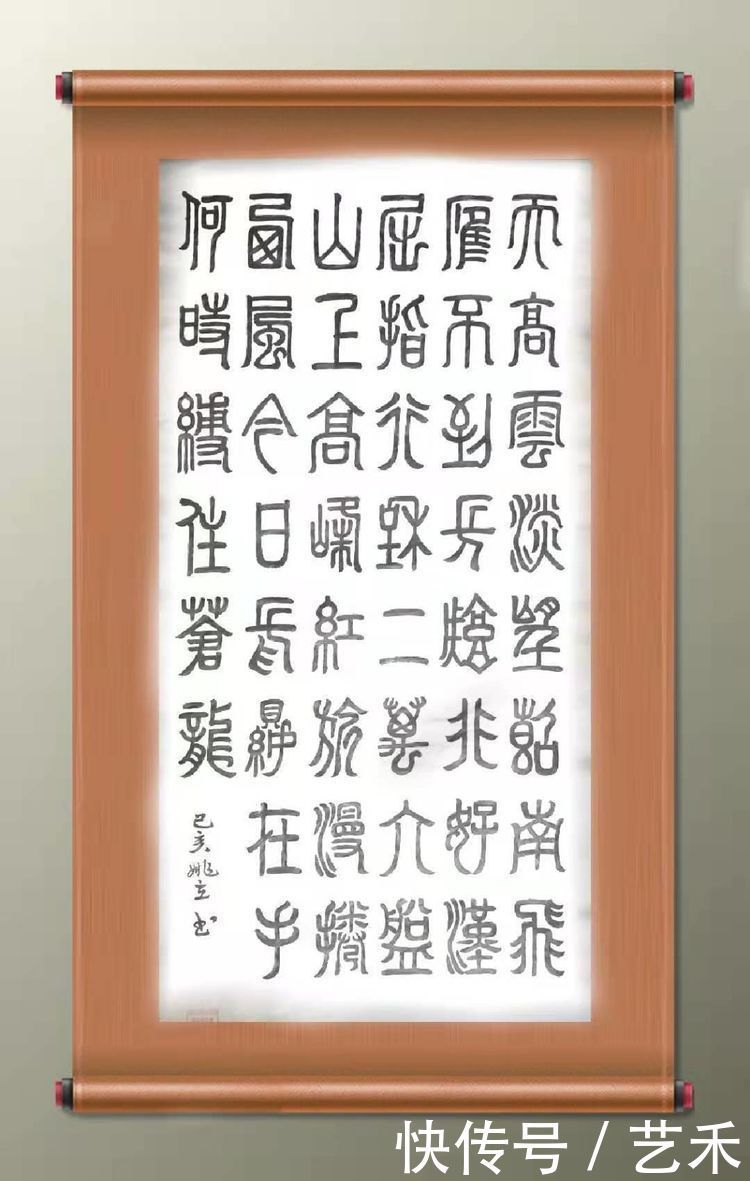 天高雲淡望斷南飛
雁不到長城非好漢
屈指行程二萬六盤
山上高峰紅旗漫捲
西風今日長纓在手
何時縛住蒼龍
己亥姚立书
快传号 / 艺禾